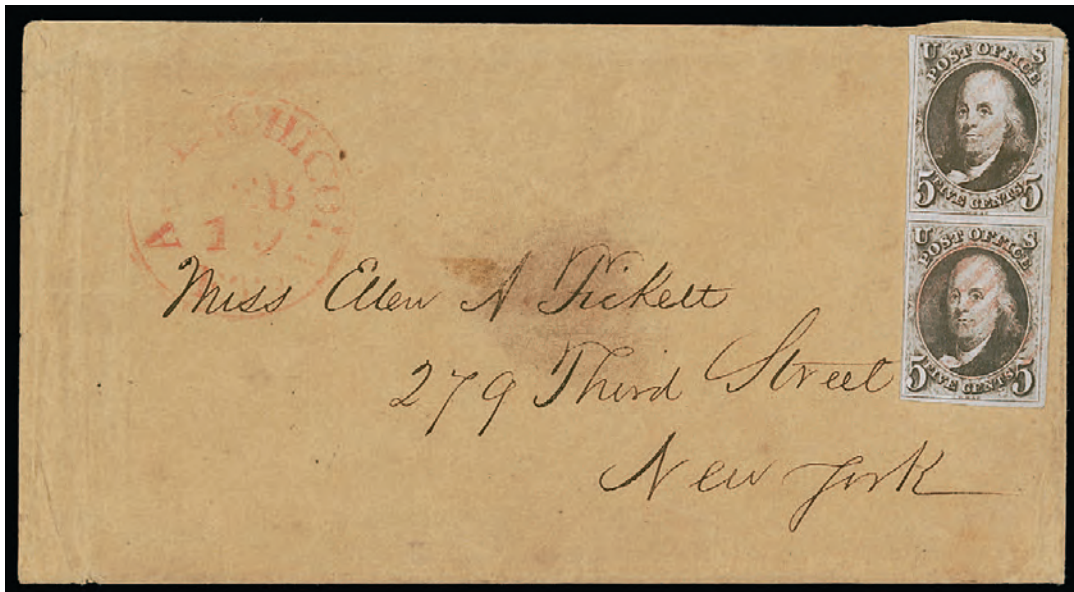 U S
POST OFFICE
5 FIVE CENTS 5
U S
POST OFFICE
5 FIVE CENTS 5
19
Miss Ellen A Fickett
279 Third Street
New York